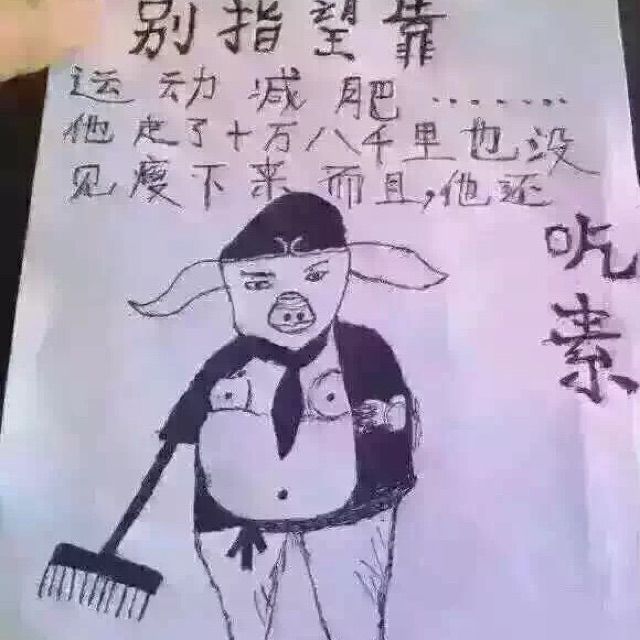 别指望靠
运动减肥........
他走了十万八千里也没
见瘦下来而且,他还
吃素